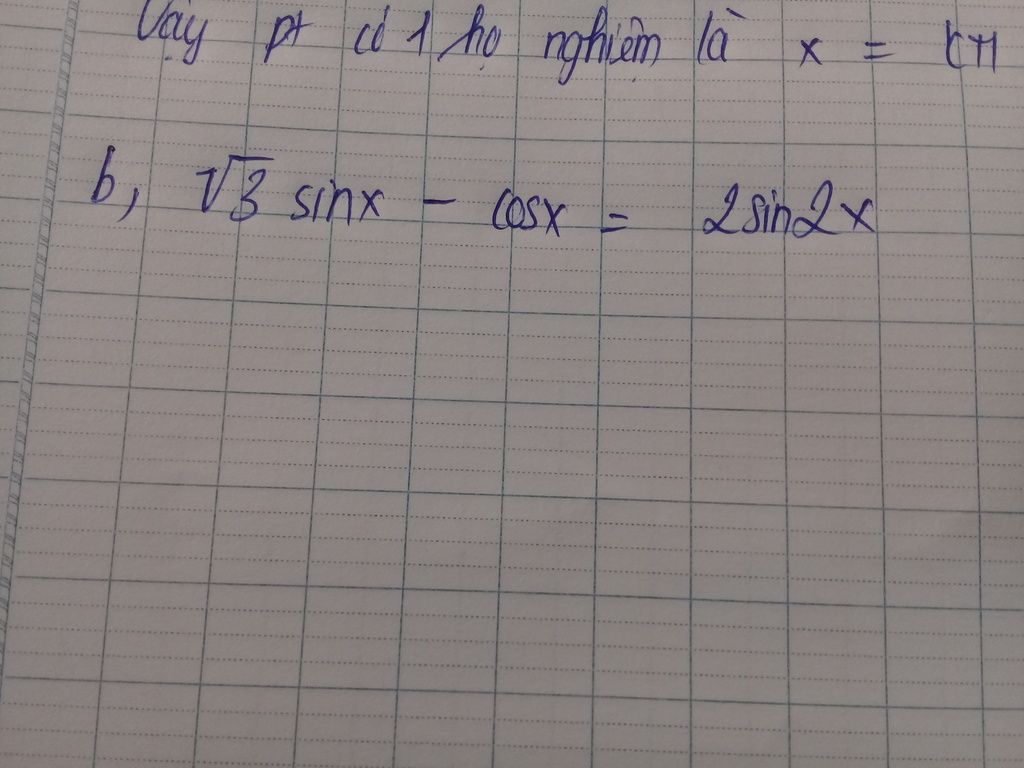 Vậy pt có 1 họ nghiệm là x = kπ
b, √3 sinx - cosx = 2sin2x